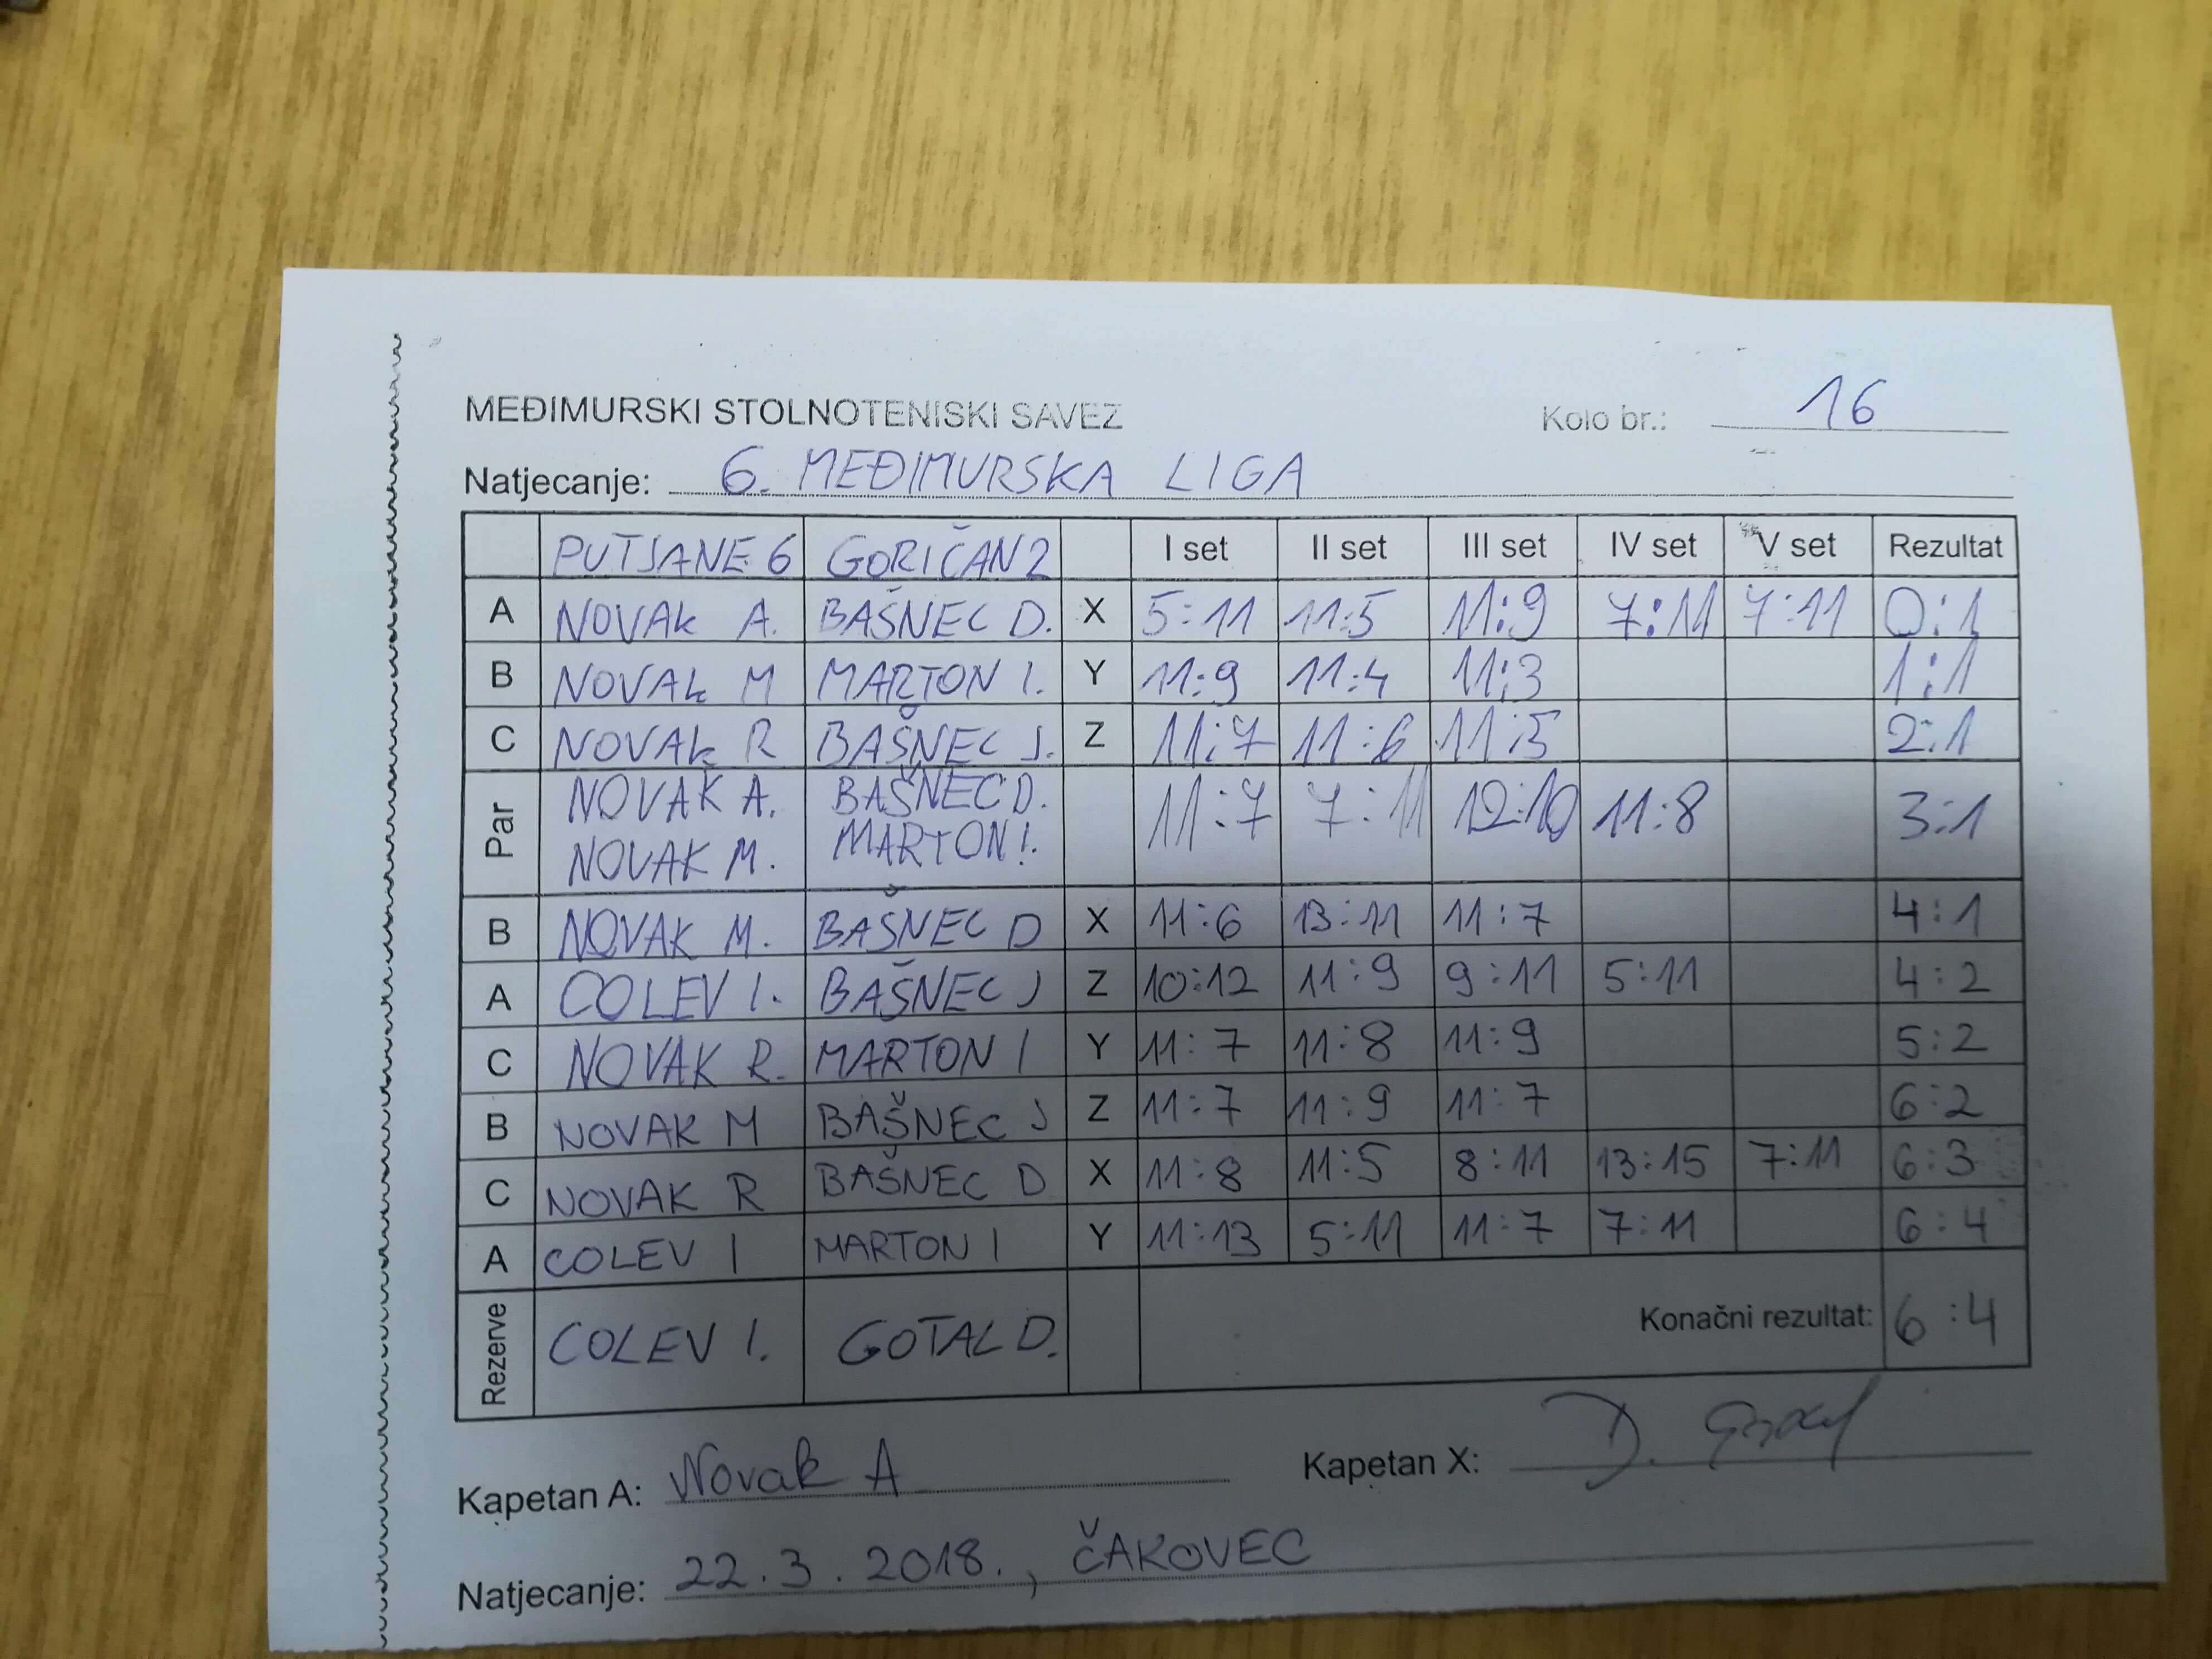 MEĐIMURSKI STOLNOTENISKI SAVEZ Kolo br.: 16
Natjecanje: 6. MEĐIMURSKA LIGA
PUTJANE 6 GORIČAN 2 I set II set III set IV set V set Rezultat
A NOVAK A. BAŠNEC D. X 5:11 11:5 11:9 7:11 7:11 0:1
B NOVAK M MARTON I. Y 11:9 11:4 11:3 1:1
C NOVAK R BAŠNEC J. Z 11:7 11:6 11:5 2:1
Par NOVAK A. BAŠNEC D. 11:7 7:11 12:10 11:8 3:1
NOVAK M. MARTON I.
B NOVAK M. BAŠNEC D X 11:6 13:11 11:7 4:1
A COLEV I. BAŠNEC J Z 10:12 11:9 9:11 5:11 4:2
C NOVAK R. MARTON I Y 11:7 11:8 11:9 5:2
B NOVAK M BAŠNEC J Z 11:7 11:9 11:7 6:2
C NOVAK R BAŠNEC D X 11:8 11:5 8:11 13:15 7:11 6:3
A COLEV I MARTON I Y 11:13 5:11 11:7 7:11 6:4
Rezerve COLEV I. GOTAL D. Konačni rezultat: 6:4
Kapetan A: Novak A Kapetan X: D.
Natjecanje: 22.3.2018., ČAKOVEC